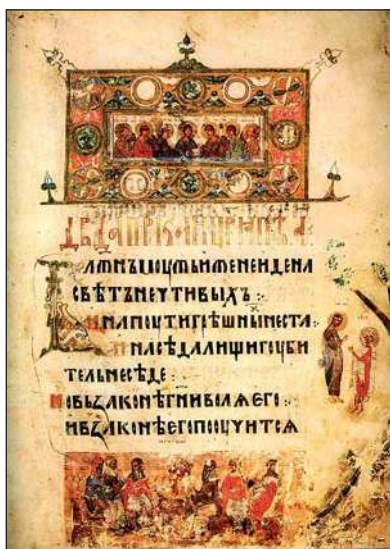 БЛЖНЪ МОУЖЬ ИЖЕ НЕ ИДЕ НА
СВѢТЪ НЕЧТИВЫХЪ :·
И НА ПОУТИ ГРѢШНЫХ НЕ СТА :·
И НА СѢДАЛИЩИ ГОУБИ
ТЕЛЬ НЕ СЕДЕ
НО ВЬ ЗАКОНѢ ГНИ ВОЛѦ ЕГО
И ВЬ ЗАКОНѢ ЕГО ПООУЧИТСѦ